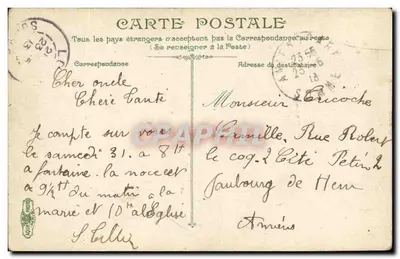 CARTE POSTALE
Tous les pays étrangers n'acceptent pas la Correspondance au recto
(Se renseigner à la Poste)
Correspondance
Adresse du destinataire
Cher oncle
Chère Tante
Je compte sur vous
le samedi 31. a 8h
a fontaine. la noce est
a 9h 1/2 du matin a la
mairie et 10h a l'Eglise
Monsieur
Camille, Rue Robert
le coq. 2 Cité Petit 2
Faubourg de Hem
Amiens